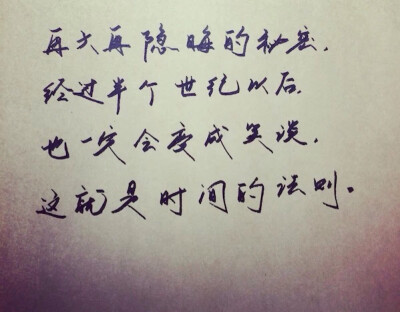 再大再隐晦的秘密，
经过半个世纪以后，
也一定会变成笑谈，
这就是时间的法则。